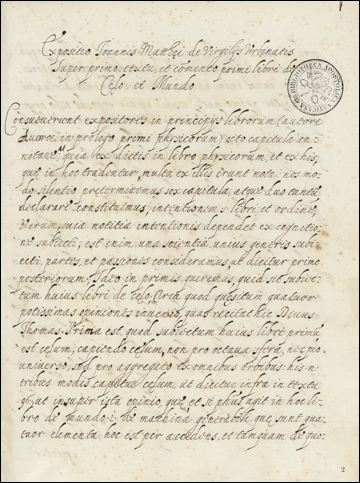 Expositio Joannis Matthęi de Virgilijs Urbinatis
Super primo, textu, et cõmento primi libri de
Cęlo, et Mundo
Consueuerunt expositores in principijs librorum (autore
Auerroe in prologo primi physicorum) octo capitula
notare, quia ex dictis in libro physicorum, et ex his,
que in hoc tradentur, multa ex illis erunt nota: nos
do silentio pretermittimus sex capitula, atque duo tantũ
declarare constituimus, intentionem .s. libri, et ordinẽ,
Verum, quia notitia intentionis dependet ex cognitio
ne subiecti; est enim una scientia unius generis subi
ecti, partes, et passiones consideramus ut dicitur primo
posteriorum. Ideo in primis queremus, quid sit subiec
tum huius libri de Cęlo, Circa quod quęsitum quatuor
potissimas opiniones inuenio, quas recitat hic Diuus
Thomas. Prima est quod subiectum huius libri primũ
est celum, capiendo celum, non pro octaua sfera, nec pro
uniuerso, sed pro aggregato ex omnibus orbibus his
tribus modis capitur celum, ut dicitur infra in textu
96, at insuper ista opinio, que et si phũs agit in hoc li
bro de mundo .i. de machina generabili, que sunt qua
tuor elementa, hoc est per accidens, et tamquam de quo-
2